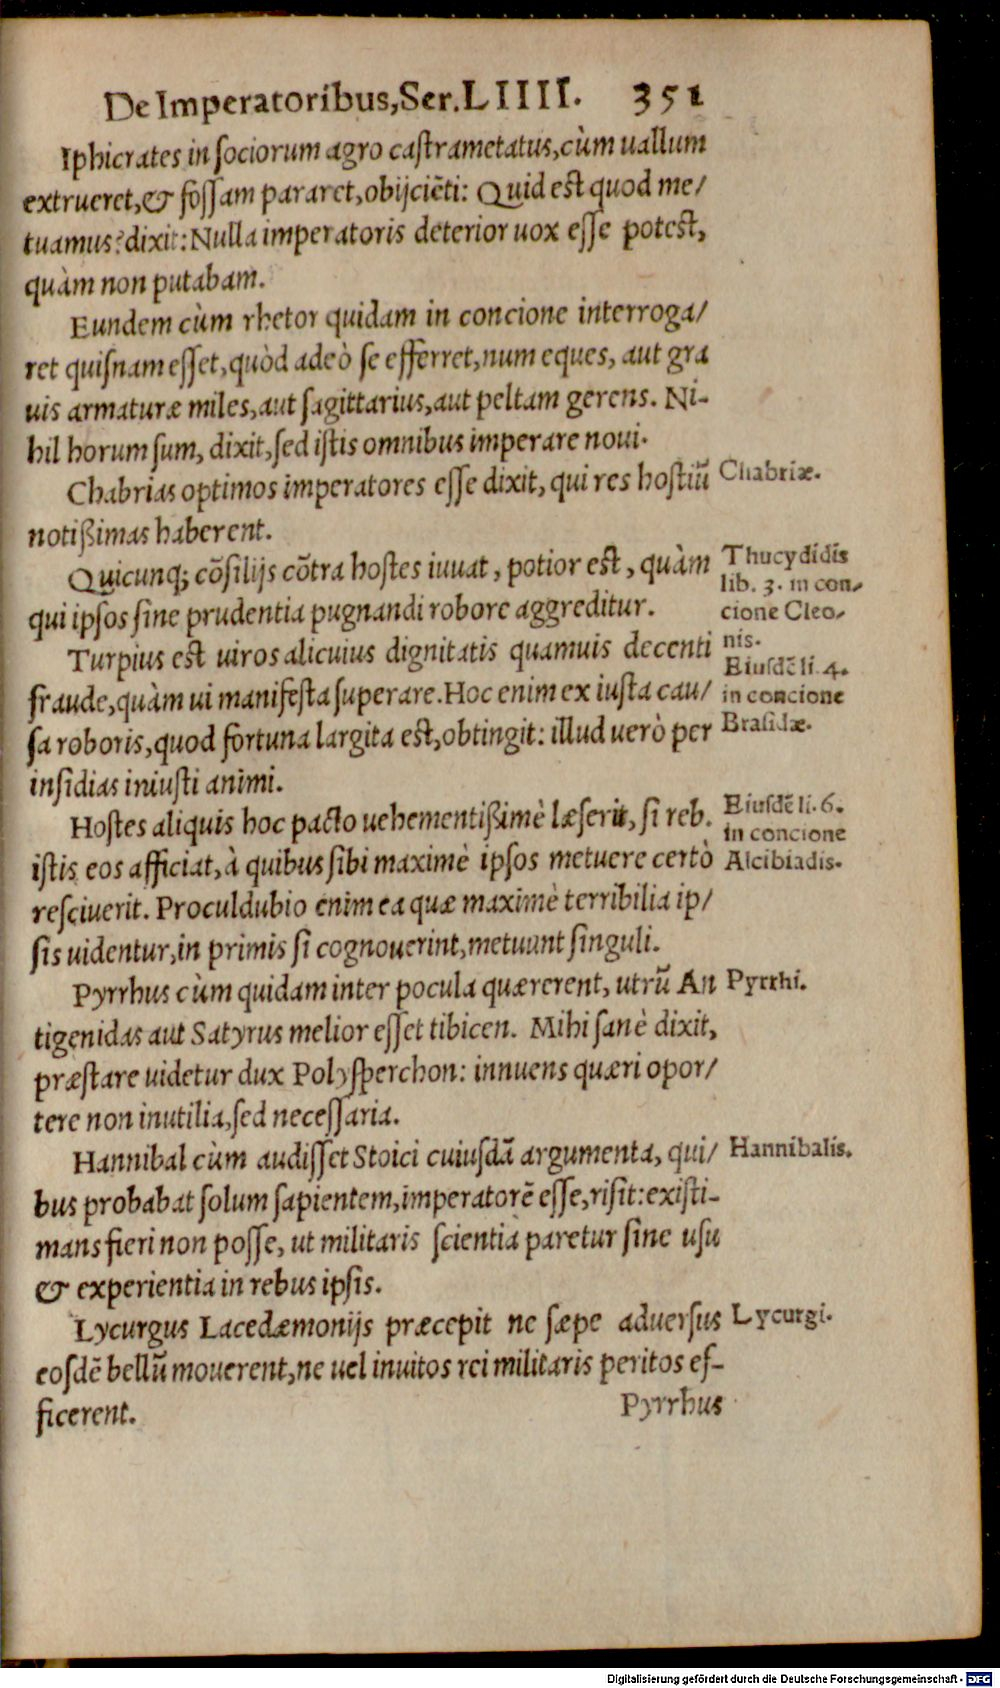 De Imperatoribus, Ser. LIIII. 351
Iphicrates in sociorum agro castrametatus, cùm uallum
extrueret, & fossam pararet, obijciẽti: Quid est quod me/
tuamus? dixit: Nulla imperatoris deterior uox esse potest,
quàm non putabam.
Eundem cùm rhetor quidam in concione interroga/
ret quisnam esset, quòd adeò se efferret, num eques, aut gra
uis armaturæ miles, aut sagittarius, aut peltam gerens. Ni-
hil horum sum, dixit, sed istis omnibus imperare noui.
Chabrias optimos imperatores esse dixit, qui res hostiũ
notißimas haberent.
Chabriæ.
Quicunq; cõsilijs cõtra hostes iuuat, potior est, quàm
qui ipsos sine prudentia pugnandi robore aggreditur.
Thucydidis
lib. 3. in con-
cione Cleo-
nis.
Turpius est uiros alicuius dignitatis quamuis decenti
fraude, quàm ui manifesta superare. Hoc enim ex iusta cau/
sa roboris, quod fortuna largita est, obtingit: illud uerò per
insidias iniusti animi.
Eiusdẽ li. 4.
in concione
Brasidæ.
Hostes aliquis hoc pacto uehementißimè læserit, si reb.
istis eos afficiat, à quibus sibi maximè ipsos metuere certò
resciuerit. Proculdubio enim ea quæ maximè terribilia ip/
sis uidentur, in primis si cognouerint, metuunt singuli.
Eiusdẽ li. 6.
in concione
Alcibiadis.
Pyrrhus cùm quidam inter pocula quærerent, utrũ An
tigenidas aut Satyrus melior esset tibicen. Mihi sanè dixit,
præstare uidetur dux Polysperchon: innuens quæri opor/
tere non inutilia, sed necessaria.
Pyrrhi.
Hannibal cùm audisset Stoici cuiusdã argumenta, qui/
bus probabat solum sapientem, imperatorẽ esse, risit: existi-
mans fieri non posse, ut militaris scientia paretur sine usu
& experientia in rebus ipsis.
Hannibalis.
Lycurgus Lacedæmonijs præcepit ne sæpe aduersus
eosdẽ bellũ mouerent, ne uel inuitos rei militaris peritos ef-
ficerent.
Lycurgi.
Pyrrhus
Digitalisierung gefördert durch die Deutsche Forschungsgemeinschaft - DFG